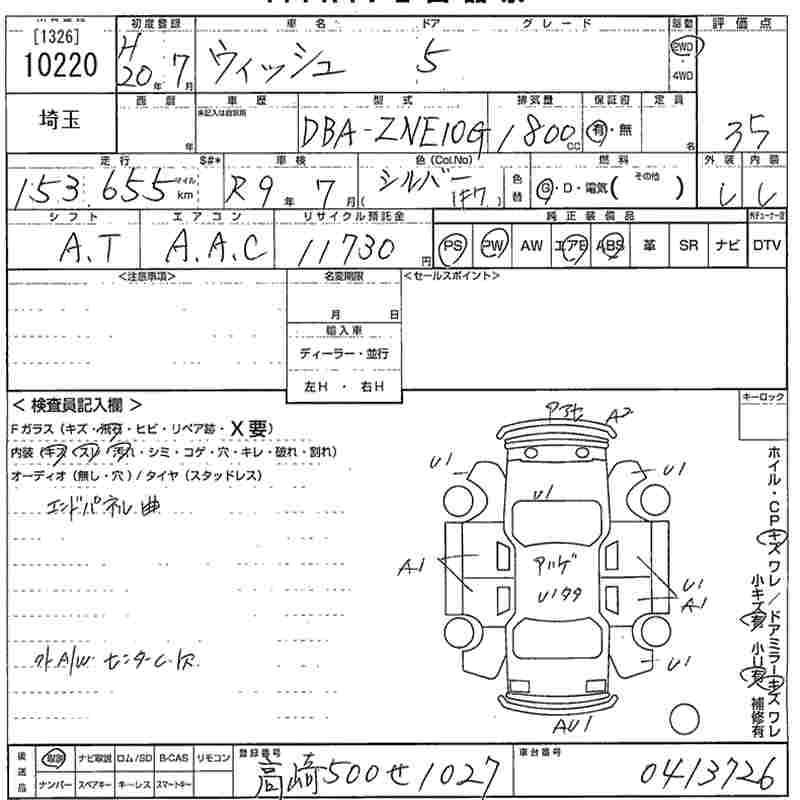 [1326]
10220
初度登録 車名 ドア グレード 駆動 評価点
H20年7月 ウィッシュ 5 2WD ・4WD
埼玉
西暦 車歴 型式 排気量 保証書 定員
未記入は自家用
年 DBA-ZNE10G 1800cc 有・無 名 3.5
走行 $#* 車検 色(Col.No) 燃料 外装 内装
153,655 マイル km R9年7月 シルバー (1F7) 色替 G・D・電気( その他 )
シフト エアコン リサイクル預託金 純正装備品
A.T A.A.C 11730円 PS PW AW エアB ABS 革 SR ナビ DTV
<注意事項> 名変期限 <セールスポイント>
月 日
輸入車
ディーラー・並行
左H ・ 右H
<検査員記入欄> キーロック
Fガラス(キズ・飛石・ヒビ・リペア跡・X要)
内装(キズ・スレ・汚れ・シミ・コゲ・穴・キレ・破れ・割れ)
オーディオ(無し・穴)/タイヤ(スタッドレス)
エンドパネル曲
外A/W センターC欠
アラセ A2
U1 U1
U1
A1 アハゲ U1
U1タタ A1
U1
AU1
ホイル・CPキズ ワレ/ドアミラーキズ ワレ
小キズ有 小U有 補修有
後送品 取説 ナビ取説 ロム/SD B-CAS リモコン
ナンバー スペアキー キーレス スマートキー
登録番号 高崎500せ1027
車台番号 0413726